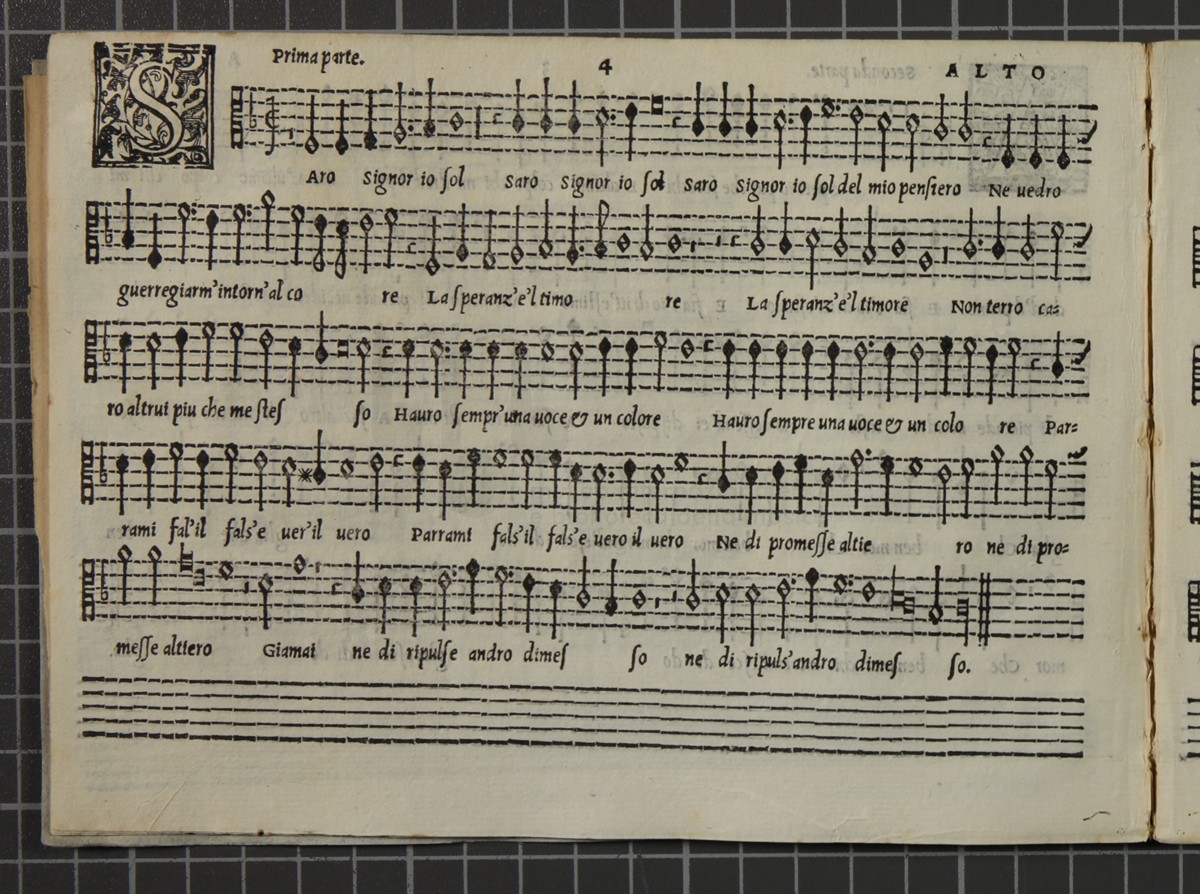 Prima parte. 4 ALTO
S
Aro Signor io sol Saro Signor io sol Saro Signor io sol del mio pensiero Ne uedro
guerregiarm'intorn'al co re La speranz'e'l timo re La speranz'e'l timore Non terro ca=
ro altrui piu che me stes so Hauro sempr'una uoce & un colore Hauro sempre una uoce & un colo re Par=
rami fal'il fals'e uer'il uero Parrami fals'il fals'e uero il uero Ne di promesse altie ro ne di pro=
messe altiero Giamai ne di ripulse andro dimes so ne di ripuls'andro dimes so.